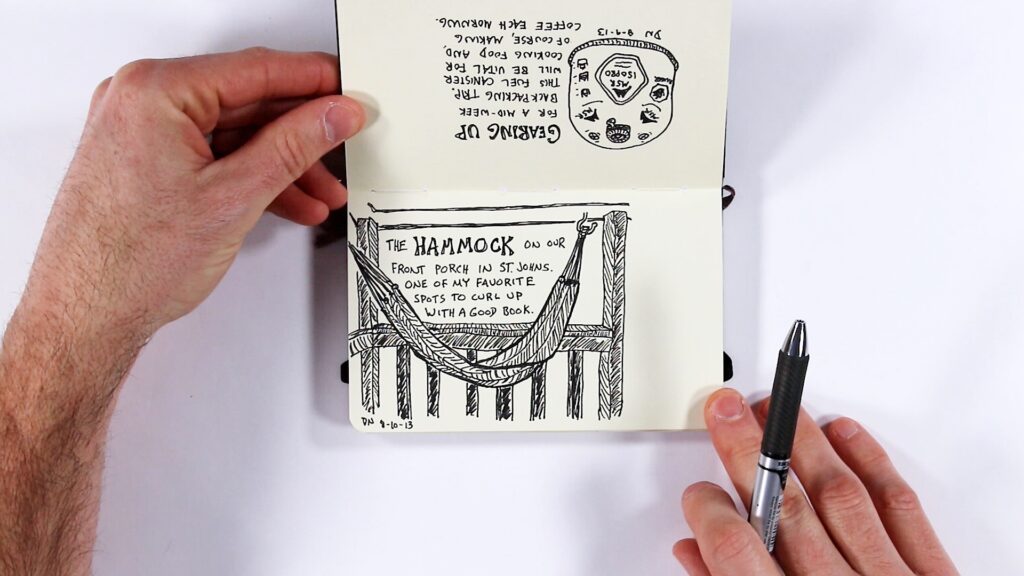 GEARING UP
FOR A MID-WEEK
BACKPACKING TRIP.
THIS FUEL CANISTER
WILL BE VITAL FOR
COOKING FOOD AND,
OF COURSE, MAKING
COFFEE EACH MORNING.
MSR
ISOPRO
DN 8-9-13
THE HAMMOCK ON OUR
FRONT PORCH IN ST. JOHNS.
ONE OF MY FAVORITE
SPOTS TO CURL UP
WITH A GOOD BOOK.
DN 8-10-13